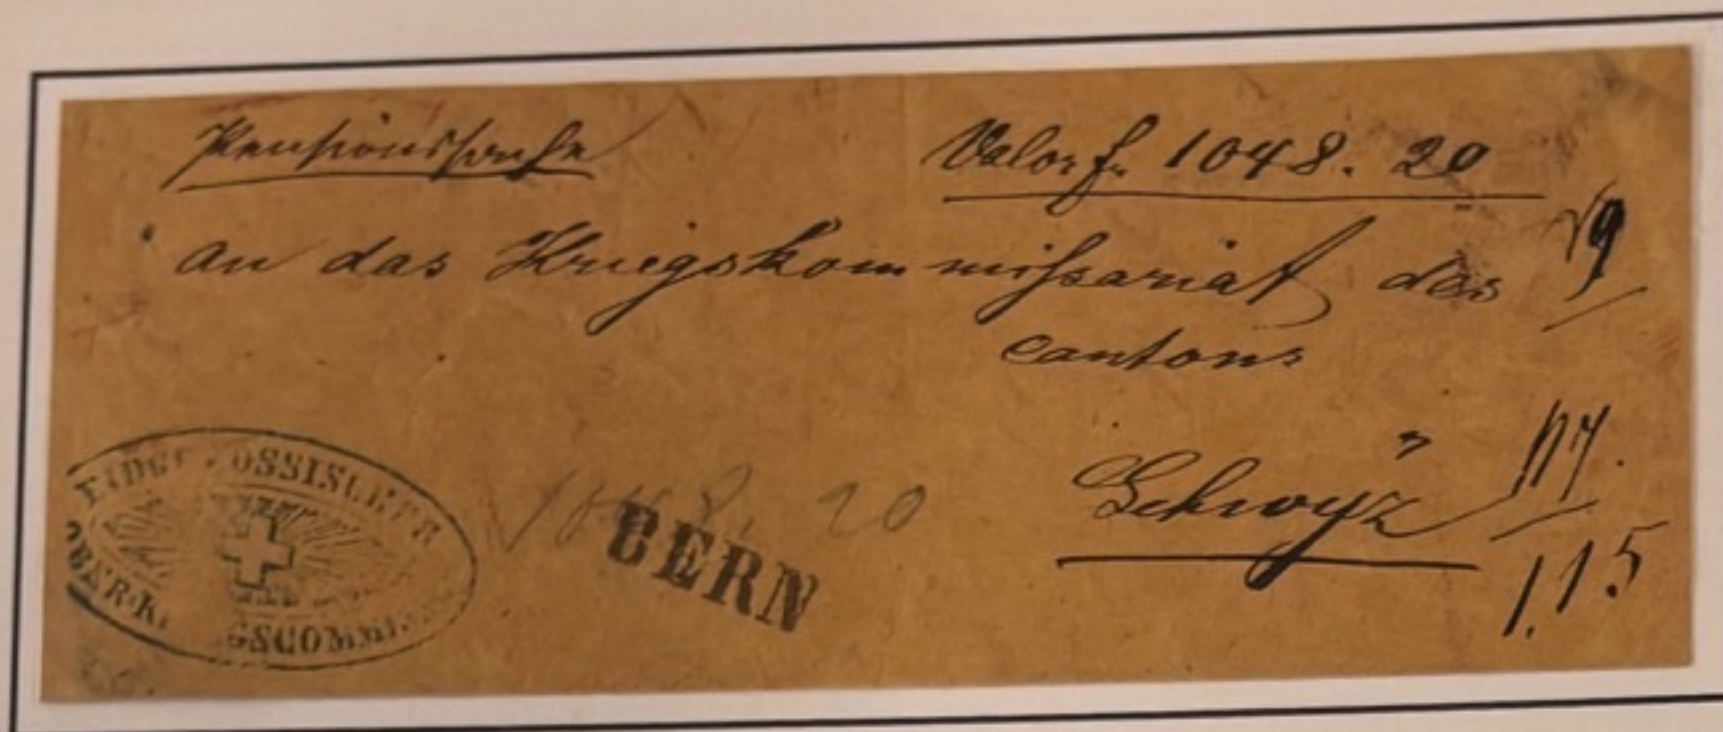 Pensionssache
Valor f. 1048. 20
an das Kriegskommissariat des
Cantons
Schwyz
1.15
1048. 20
BERN
EIDG OSSISCHES
OBER-K GSCOMMI